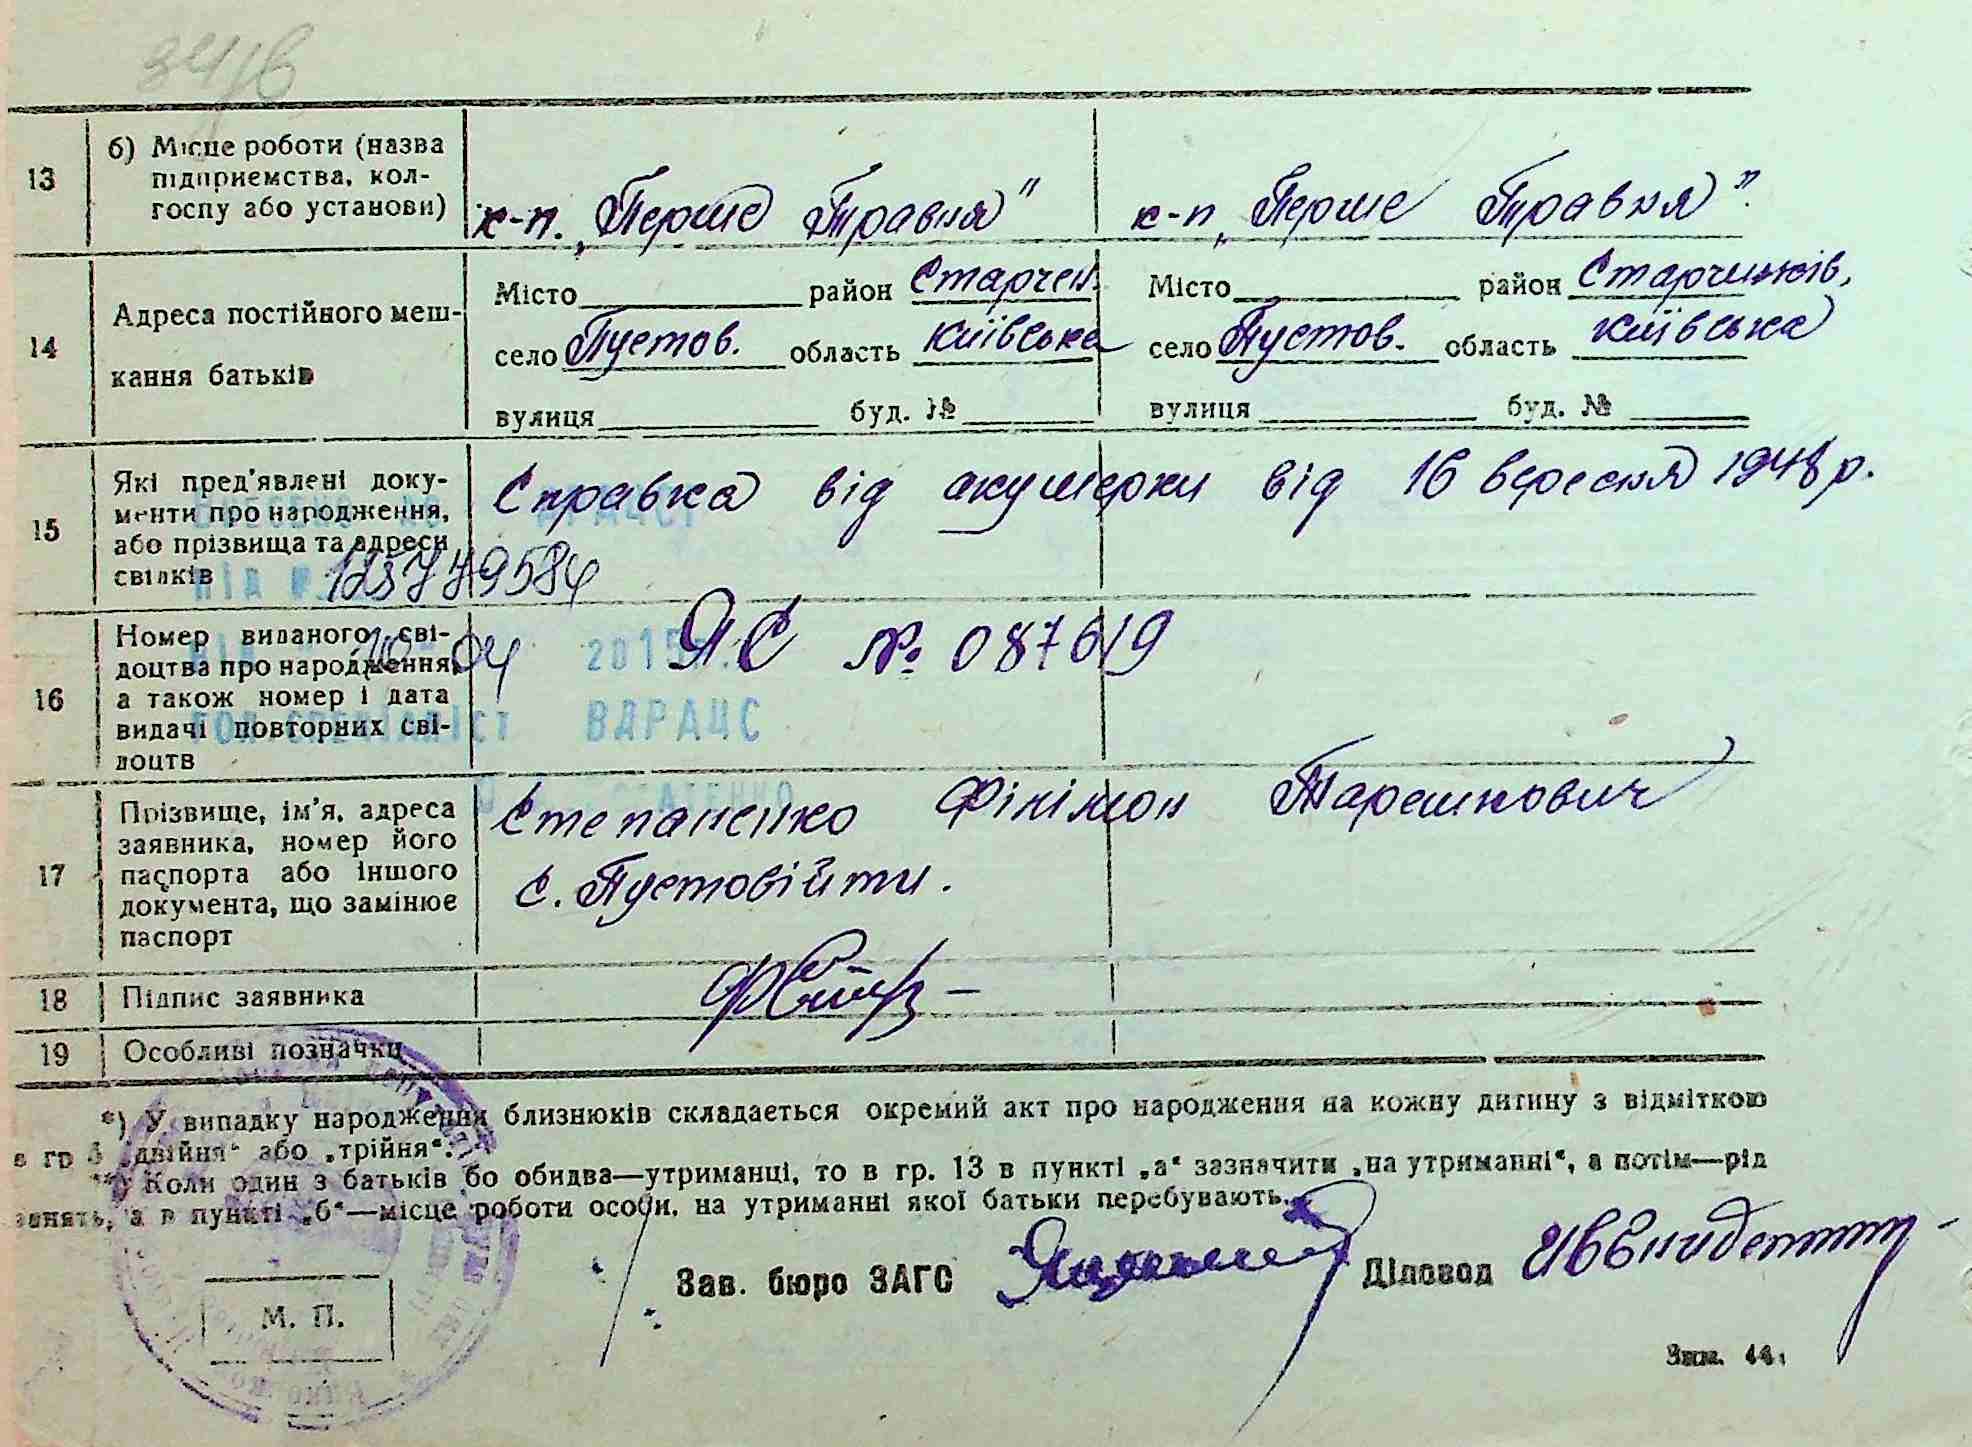 13
б) Місце роботи (назва
підприємства, кол-
госпу або установи)
к-п. „Перше Травня"
к-п „Перше Травня".
14
Адреса постійного меш-
кання батьків
Місто район Старчен.
село Пустов. область Київська
вулиця буд. №
Місто район Старченків.
село Пустов. область Київська
вулиця буд. №
15
Які пред'явлені доку-
менти про народження,
або прізвища та адреси
свідків
Справка від акушерки від 16 вересня 1948 р.
16
Номер виданого сві-
доцтва про народження,
а також номер і дата
видачі повторних сві-
доцтв
ЯС № 087619
04 2015
ВДРАЦС
17
Прізвище, ім'я, адреса
заявника, номер його
паспорта або іншого
документа, що замінює
паспорт
Степаненко Філімон
с. Пустовійти.
18
Підпис заявника
19
Особливі позначки
*) У випадку народження близнюків складається окремий акт про народження на кожну дитину з відміткою
в гр „двійня" або „трійня".
**) Коли один з батьків бо обидва—утриманці, то в гр. 13 в пункті „а" зазначити „на утриманні", а потім—рід
занять, а в пункті „б"—місце роботи особи, на утриманні якої батьки перебувають.
Зав. бюро ЗАГС
Діловод
М. П.
Зам. 44.